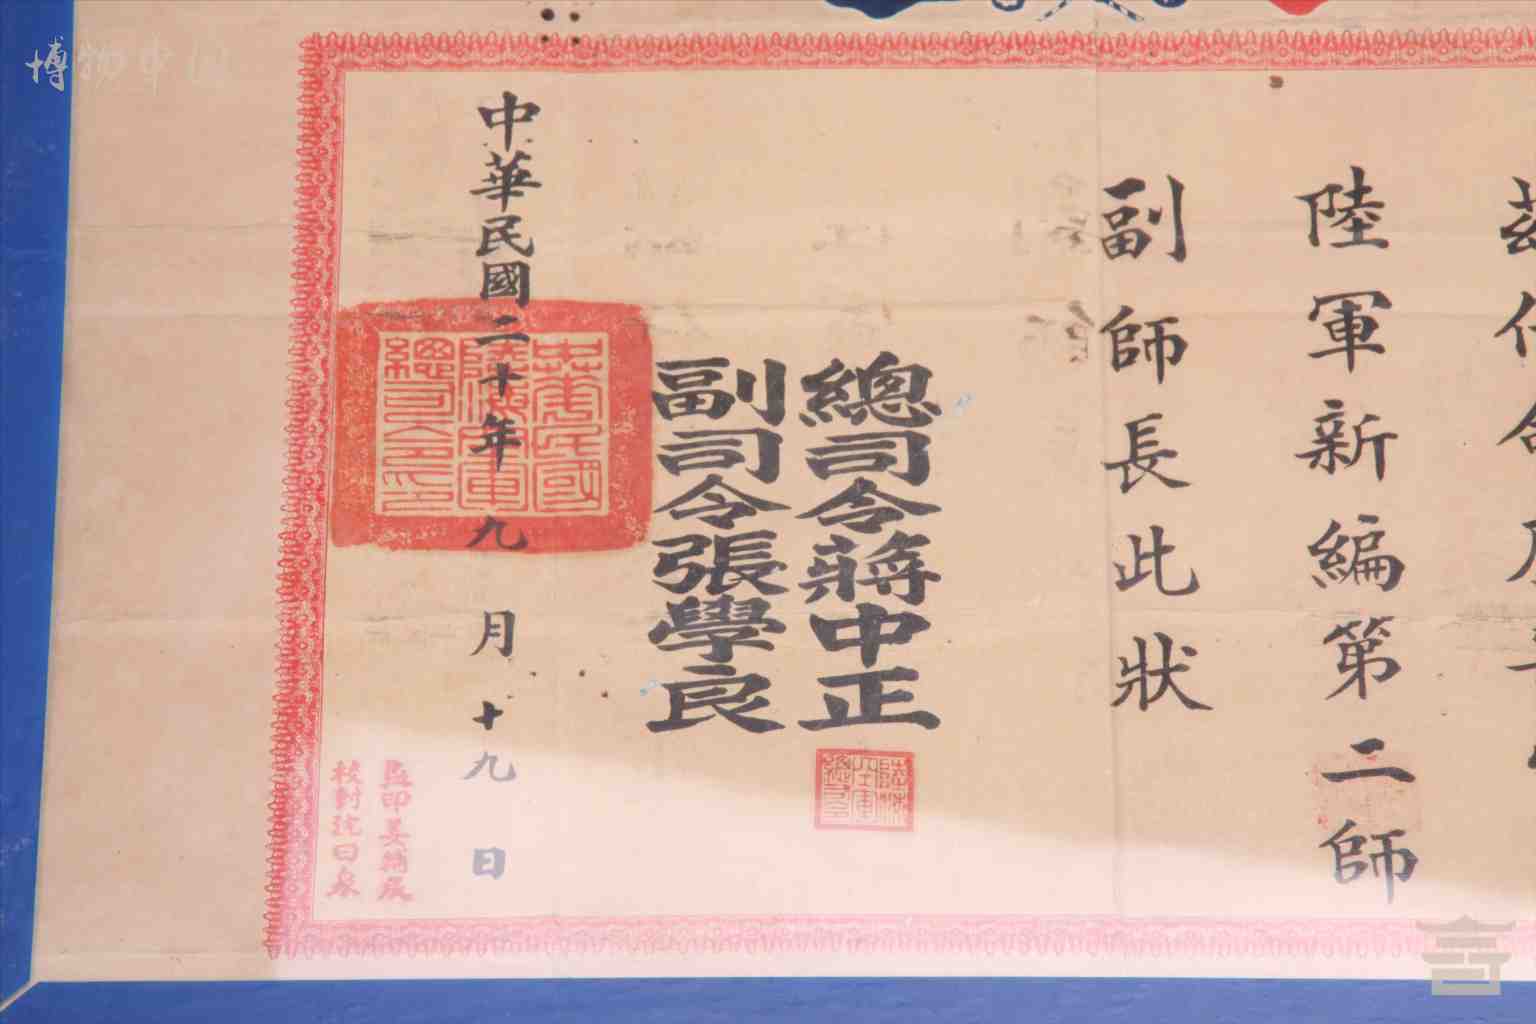 陸軍新編第二師
副師長此狀
總司令蔣中正
副司令張學良
中華民國二十年九月十九日
中華民國
陸海空軍
總司令印
監印吳
校對沈曰泉
博物中国